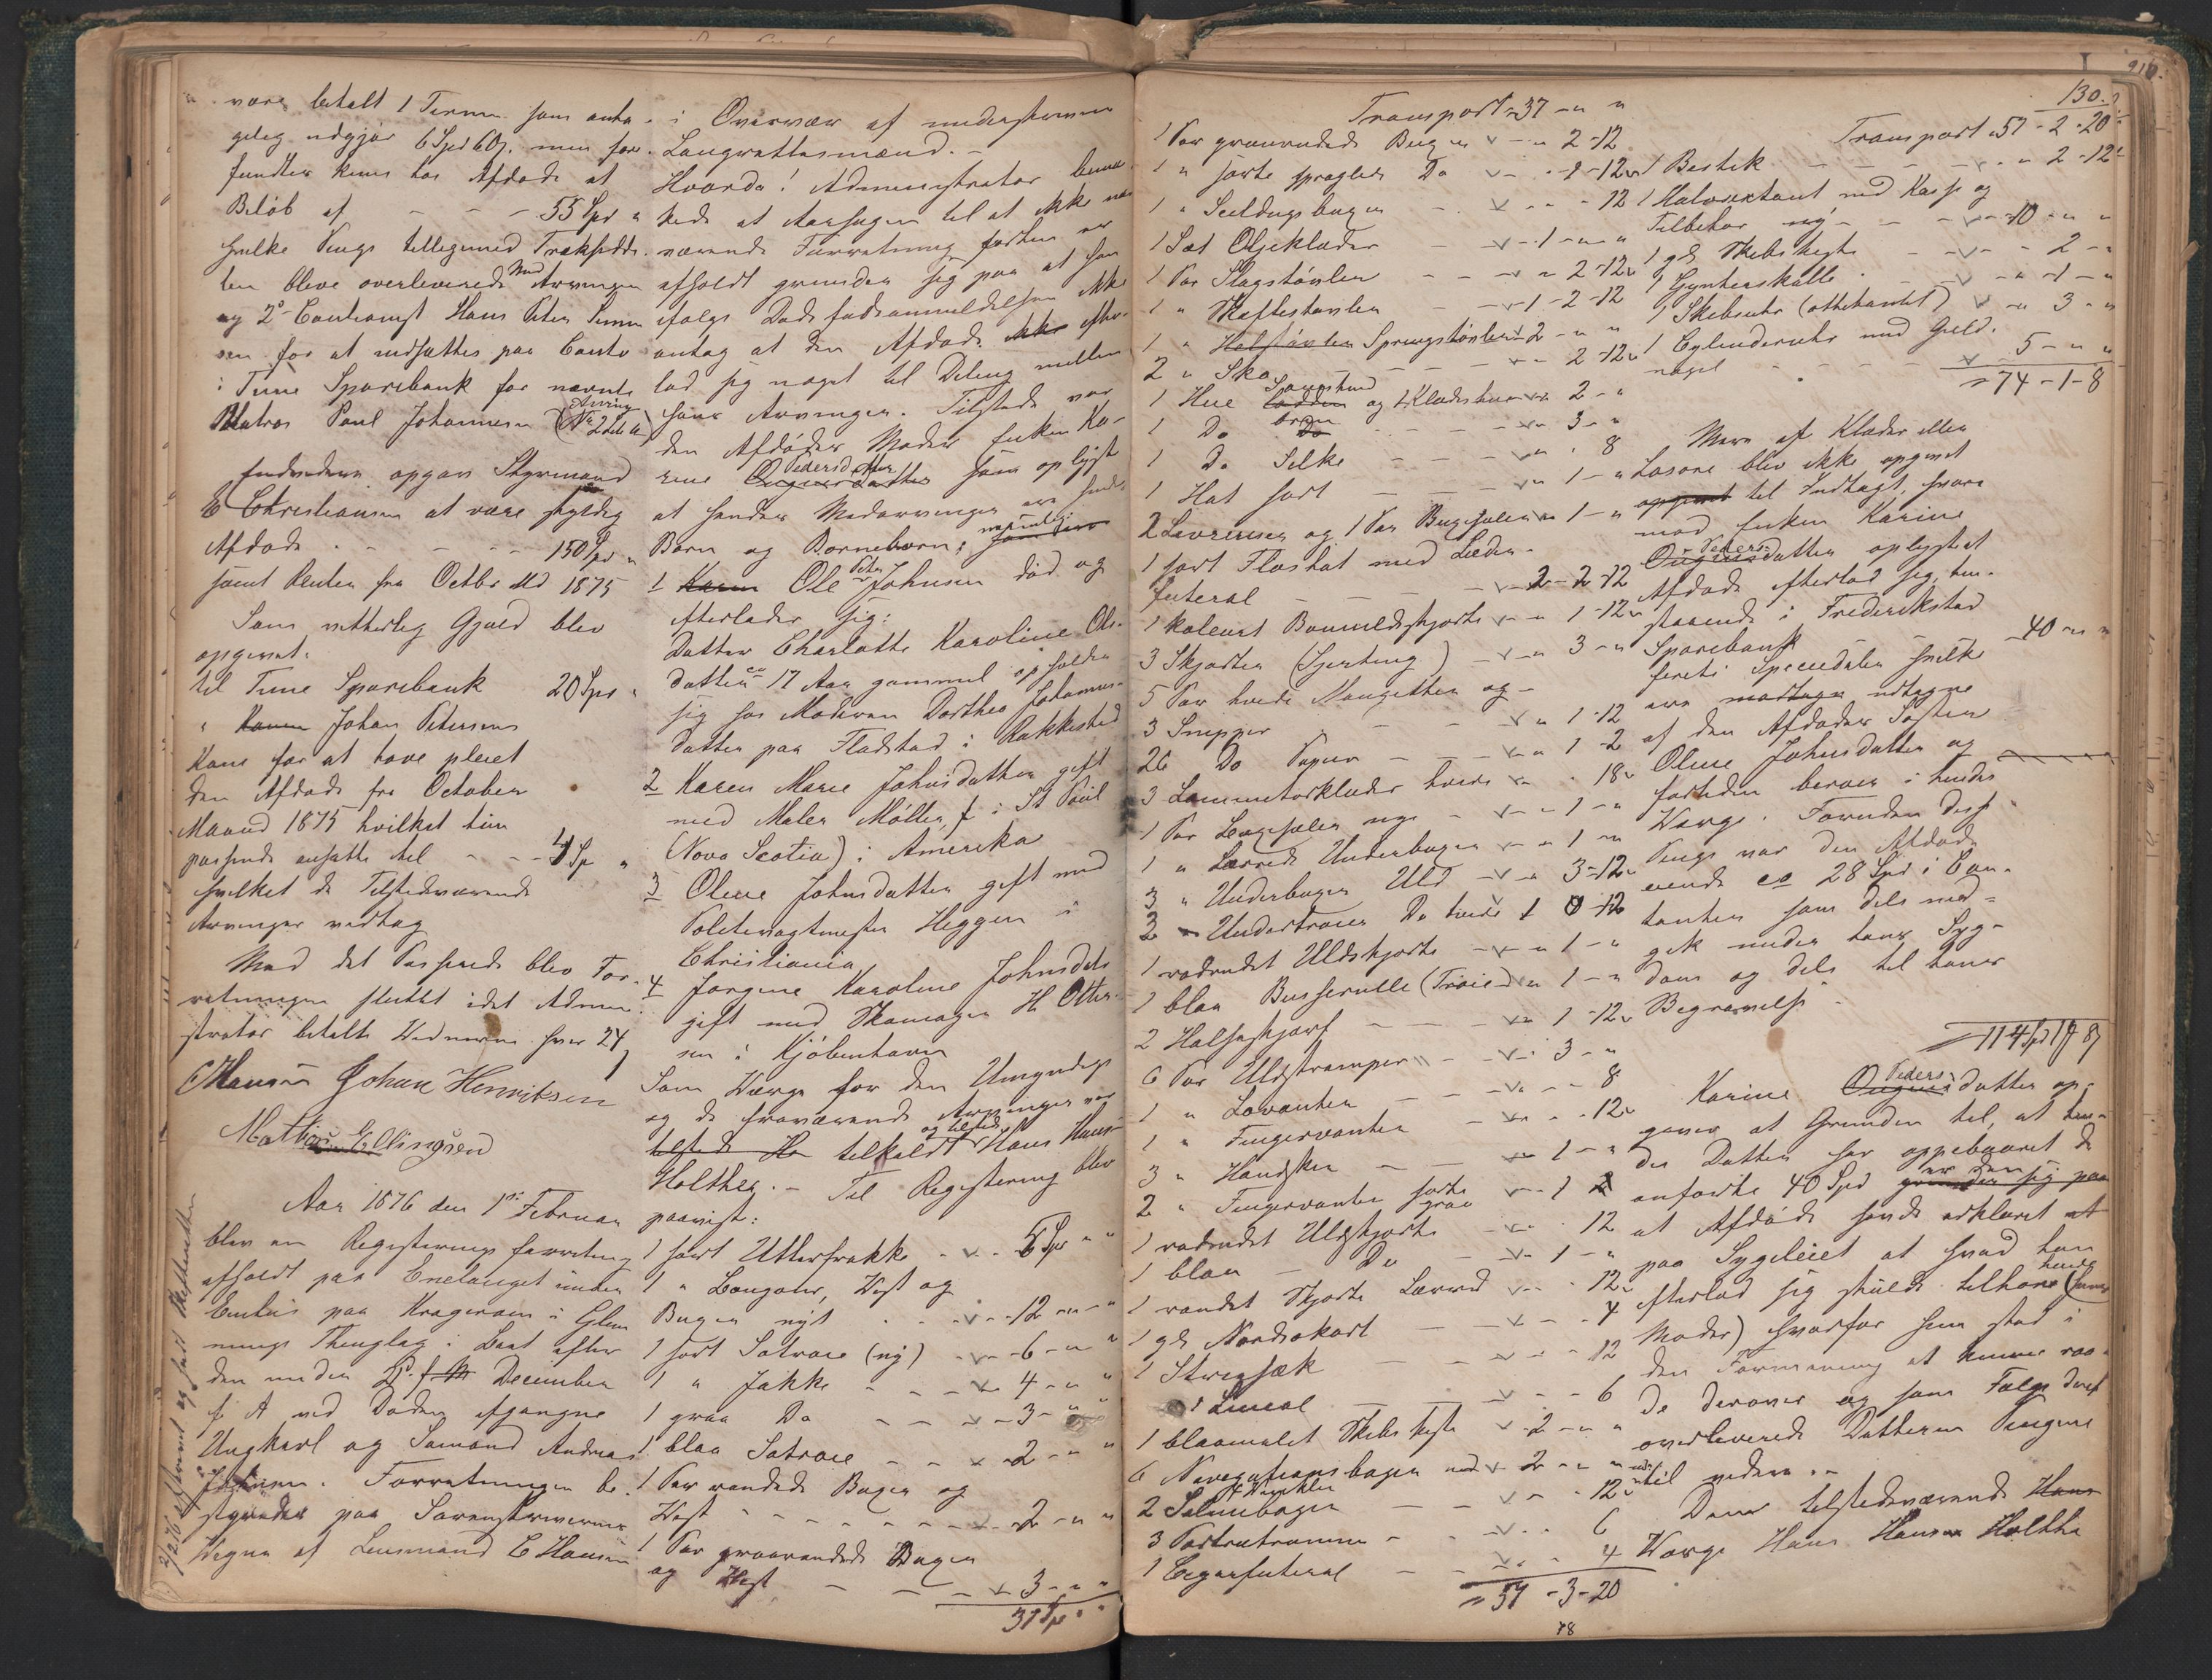 være betalt 1 Termin som anta-
gelig udgjør 6 Spd 60s. men fore-
fundtes kuns hos Afdøde et
Beløb af - - - 55 Spd "
hvilke Penge tilligemed Trækseddelen
bleve overleverede Arvingen
og 2den Contorist Hans Peter
sen for at indsættes paa Conto
i Tune Sparebank for nævnte
Matros Paul Johannesen (Arving No 2
Endvidere opgav Styrmand
E Christiansen at være skyldig
Afdøde - - - 150 Spd "
samt Renter fra Octbr Md 1875
Som vitterlig Gjæld blev
opgivet:
til Tune Sparebank 20 Spd "
" Johan Petersens
Kone for at have pleiet
den Afdøde fra October
Maaned 1875 hvilket tiin
passende ansatte til - - - 4 Sp "
hvilket de Tilstedeværende
Arvinger vedtog
Med det Passerede blev For-
retningen sluttet idet Admini-
strator betalte Vidnerne hver 24
C Hansen Johan Henriksen
Mathias Ellingsen
Aar 1876 den 1ste Februar
blev en Registrerings forretning
afholdt paa Enelanget under
Enhuus paa Kragerøen i Glem-
minge Thinglag i Boet efter
den under December
f. A ved Døden afgangne
Ungkarl og Sømand Andreas
Johnsen. Forretningen be-
styredes paa Sorenskriverens
Vegne af Lensmand C Hansen
i Overvær af undertegnede
Laugrettesmænd. -
Hvorda! Administrator bemær-
kede at Aarsagen til at ikke nær-
værende Forretning førthen er
afholdt grunder sig paa at han
ifølge Dødsfaldsanmeldelsen ikke
antog at den Afdøde efter-
lod sig noget til Deling mellem
hans Arvinger. Tilstede var
den Afdødes Moder Enken Ka-
rine Pedersdatter som oplyste
at hendes Medarvinger ere hendes
Børn og Børnebørn; nemlig:
1 Ole Peter Johnsen død og
efterlader sig:
Datter Charlotte Karoline Ols-
datter ca 17 Aar gammel opholder
sig hos Moderen Dorthea Johannes-
datter paa Fladstad i Rakkestad
2 Karen Marie Johnsdatter gift
med Maler Møller, f: i St Paul
(Nova Scotia) i Amerika
3 Oline Johnsdatter gift med
Politivagtmester Heggen i
Christiania
4 Jørgine Karoline Johnsdtr
gift med Skomager H Otter-
sen i Kjøbenhavn
Som Værge for den Umyndige
og de fraværende Arvinger var
tilkaldt og tilstede Hans Hansen
Holthe. - Til Registrering blev
paavist:
1 sort Vtterfrakke - v - 5 Spd " "
1 " Bonjour, Vest og
Buxer nyt - v - 12 - " - "
1 sort Søtrøie (ny) - v - 6 - " - "
1 " Jakke - - - v - 4 - " "
1 graa Do - - - v - 3 - " "
1 blaa Søtrøie - - v - 2 - " "
1 Par randede Buxer og
Vest - - - - - - v - 2 - " "
1 Par graarandede Buxer
og Vest - - - v 3 - " "
37 Sp " "
2/2 76
Transport = 37 - " "
1 Par graarudede Buxer v - " 2 - 12
1 " sorte spraglede Do v - " 1 - 12
1 " Seildugsbuxer - v - - - 12
1 Sæt Oljeklæder - v - 1 - " "
1 Par Slagstøvler - - - v " 2 - 12
1 " Skaftestøvler - - v 1 - 2 - 12
1 " Springstøvler v 2 - " "
2 " Sko - - - v " 2 - 12
1 Hue og 1 Klædeshue v " 2 - "
1 Do - - - - v " 3 - "
1 Do Silke - - - v " " 8
1 Hat sort - - - v " 1 - "
2 Livremmer og 1 Par Buxeseler v " 1 - "
1 sort Floshat med Læder-
futeral - - - - v 2 - 2 - 12
1 kuleurt Bomuldsskjorte v - " 1 - 12
3 Skjorter (Sjerting) - v - " 3 - "
5 Par hvide Mangetter og -
3 Snipper - - - v " 1 - 12
26 Do Papir - - - v " 1 - 2
3 Lommetørklæder hvide v - " 18
1 Par Buxeseler nye - v - " 1 - "
1 " Lærreds Underbuxer v - " 1 - "
3 " Underbuxer Uld - v - " 3 - 12
2 " Undertrøier Do hvide
1 rødrudet Uldskjorte - v - " 1 - "
1 blaa Busserulle (Trøie) v " 1 - "
2 Halsskjærf - - - v " 1 - 12
6 Par Uldstrømper - - v - " 3 - "
1 " Lovanter - - - v " - 8
1 " Fingervanter - v " - 12
3 " Handsker - - v " 1 - "
2 " Fingervanter sorte graa - v - 1
1 rødrudet Uldskjorte - v - " 12
1 blaa - Do - v " 1 - "
1 randet Skjorte Lærred v - " 12
1 gl Nordsøkort - - v - " 4
1 Strøsæk - - v " - 12
1 Lineal - - - v - " 6
1 blaamalet Skibskiste v - 2 - " "
6 Navigationsbøger v 2 - " "
2 Salmebøger - - v - " 12
3 Portrætramme - - v " " 6
1 Cigarfuteral - - v - " 4
= 57 - 3 - 20
78
130.
Transport 57 - 2 - 20
1 Bestik - - - v - " 2 - 12
1 Halvsextant med Kasse og
Tilbehør ny - - - v - 10 - " "
1 gl Skibskiste - - v - " 2 - "
1 Gynterskalle - - v - " 1 - "
1 Skibsuhr (ottekantet) v - " 3 - "
1 Cylinderuhr med Guld-
nøgel - - - v 5 - " "
= 74 - 1 - 8
Mere af Klæder eller
Løsøre blev ikke opgivet
til Indtægt, hvori-
mod Enken Karine
Pedersdatter oplyste at
Afdøde efterlod sig, hen-
staaende i Frederikstad
Sparebank 40 " "
firti Speciedaler hvilke
ere udtagne
af den Afdødes Søster
Oline Johnsdatter og
fortiden beroer i hendes
Værge. Foruden disse
Penge var den Afdøde
eiende ca 28 Spd i Con-
tanter som dels med-
gik under hans Syg-
dom og dels til hans
Begravelse -
= 114 Spd 1 # 8 s
Karine Pedersdatter op-
gaves at Grunden til, at hen-
des Datter har oppebaaret de
anførte 40 Spd er den
at Afdøde havde erklæret at
paa Sygeleiet at hvad han
efterlod sig skulde tilhøre hende (hans
Moder) hvorfor hun stod i
den Formening at kunne raa-
de derover og som Følge deraf
overleverede Datteren Pengene
til videre. -
Den tilstedeværende
Værge Hans Hansen Holthe